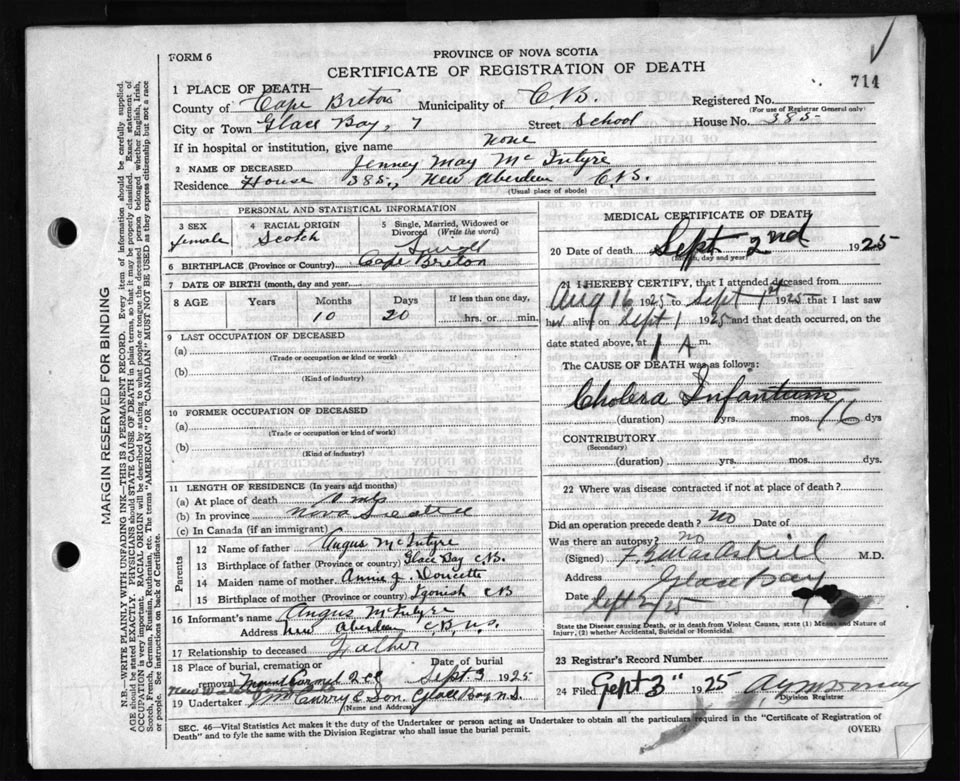 FORM 6
PROVINCE OF NOVA SCOTIA
CERTIFICATE OF REGISTRATION OF DEATH
714
1 PLACE OF DEATH—
County of Cape Breton Municipality of C.B. Registered No.
(For use of Registrar General only)
City or Town Glace Bay, 7 Street School House No. 385
If in hospital or institution, give name none
2 NAME OF DECEASED Jenney May McIntyre
Residence House 385, New Aberdeen C.B.
(Usual place of abode)
PERSONAL AND STATISTICAL INFORMATION
3 SEX female
4 RACIAL ORIGIN Scotch
5 Single, Married, Widowed or Divorced (Write the word)
6 BIRTHPLACE (Province or Country) Cape Breton
7 DATE OF BIRTH (month, day and year)
8 AGE Years Months 10 Days 20 If less than one day, hrs. or min.
9 LAST OCCUPATION OF DECEASED
(a) (Trade or occupation or kind or work)
(b) (Kind of industry)
10 FORMER OCCUPATION OF DECEASED
(a) (Trade or occupation or kind of work)
(b) (Kind of industry)
11 LENGTH OF RESIDENCE (In years and months)
(a) At place of death
(b) In province Nova Scotia
(c) In Canada (if an immigrant)
Parents
12 Name of father Angus McIntyre
13 Birthplace of father (Province or country) Glace Bay C.B.
14 Maiden name of mother Annie J. Doucette
15 Birthplace of mother (Province or country) Ingonish C B
16 Informant's name Angus McIntyre
Address New Aberdeen C.B. N.S.
17 Relationship to deceased Father
18 Place of burial, cremation or removal Mount Carmel Date of burial Sept 3 1925
New
19 Undertaker Curry & Son, Glace Bay N.S.
(Name and Address)
MEDICAL CERTIFICATE OF DEATH
20 Date of death Sept 2nd 1925
(Month, day and year)
21 I HEREBY CERTIFY, that I attended deceased from
Aug 16 1925 to Sept 1st 1925 that I last saw
her alive on Sept 1 1925 and that death occurred, on the
date stated above, at 1 A m.
The CAUSE OF DEATH was as follows:
Cholera Infantum
(duration) yrs. mos. 16 dys
CONTRIBUTORY
(Secondary)
(duration) yrs. mos. dys.
22 Where was disease contracted if not at place of death?
Did an operation precede death? no Date of
Was there an autopsy? no
(Signed) M.D.
Address Glace Bay
Date Sept 2/25
State the Disease causing Death, or in death from Violent Causes, state (1) Means and Nature of Injury, (2) whether Accidental, Suicidal or Homicidal.
23 Registrar's Record Number
24 Filed Sept 3" 1925
Division Registrar
SEC. 46—Vital Statistics Act makes it the duty of the Undertaker or person acting as Undertaker to obtain all the particulars required in the "Certificate of Registration of
Death" and to fyle the same with the Division Registrar who shall issue the burial permit.
(OVER)
MARGIN RESERVED FOR BINDING
N.B.—WRITE PLAINLY WITH UNFADING INK—THIS IS A PERMANENT RECORD. Every item of information should be carefully supplied.
AGE should be stated EXACTLY. PHYSICIANS should STATE CAUSE OF DEATH in plain terms, so that it may be properly classified. Exact statement of
OCCUPATION is very important. RACIAL ORIGIN will be described by stating to what people or tongue the deceased person belonged whether English, Irish,
Scotch, French, German, Russian, Ruthenian, etc. The terms "AMERICAN" OR "CANADIAN" MUST NOT BE USED as they express citizenship but not a race
or people. See instructions on back of Certificate.